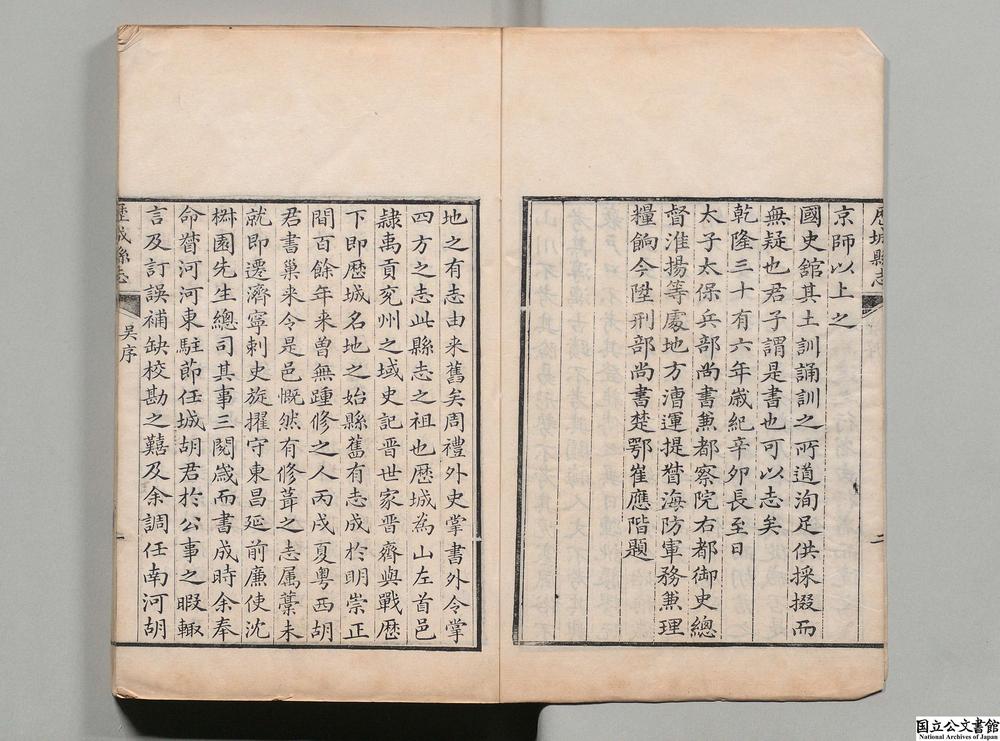 歴城縣志
二
京師以上之
國史舘其土訓誦訓之所道洵足供採掇而
無疑也君子謂是書也可以志矣
乾隆三十有六年歲紀辛卯長至日
太子太保兵部尚書兼都察院右都御史總
督淮揚等處地方漕運提督海防軍務兼理
糧餉今陞刑部尚書楚鄂崔應階題
地之有志由来舊矣周禮外史掌書外令掌
四方之志此縣志之祖也歴城為山左首邑
隷禹貢兖州之域史記晋世家晋齊與戰歴
下即歴城名地之始縣舊有志成於明崇正
間百餘年来曽無踵修之人丙戌夏粤西胡
君書巢来令是邑慨然有修葺之志属藁未
就即遷濟寧刺史旋擢守東昌延前廉使沈
椒園先生總司其事三閱歲而書成時余奉
命督河河東駐節任城胡君於公事之暇輙
言及訂誤補缺校勘之囏及余調任南河胡
歴城縣志
吴序
一
国立公文書館
National Archives of Japan